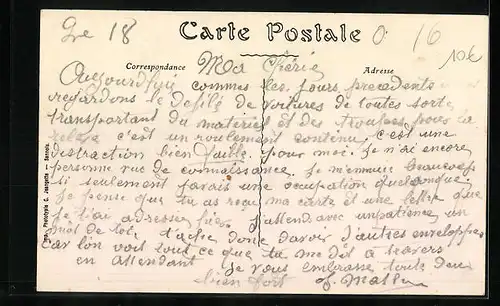 Le 18
Carte Postale
0 16
10€
Correspondance
Adresse
Ma Chérie
Aujourd'hui comme les jours precedents
regardons le defilé de voitures de toutes sorte
transportant du matériel et des troupes pour la
relève c'est un roulement contenu, c'est une
distraction bien faible pour moi. Je n'ai encore
personne vue de connaissance. Je m'ennuie beaucoup
si seulement j'avais une occupation quelconque
Je pense que tu as reçu ma carte et une lettre que
je t'ai adressée hier. J'attend avec impatience un
mot de toi, tache donc d'avoir d'autres enveloppes
car l'on voit tout ce que tu me dit a travers
en attendant je vous embrasse toute deux
bien fort
Imp. Phototypie C. Jeangette — Sannois.